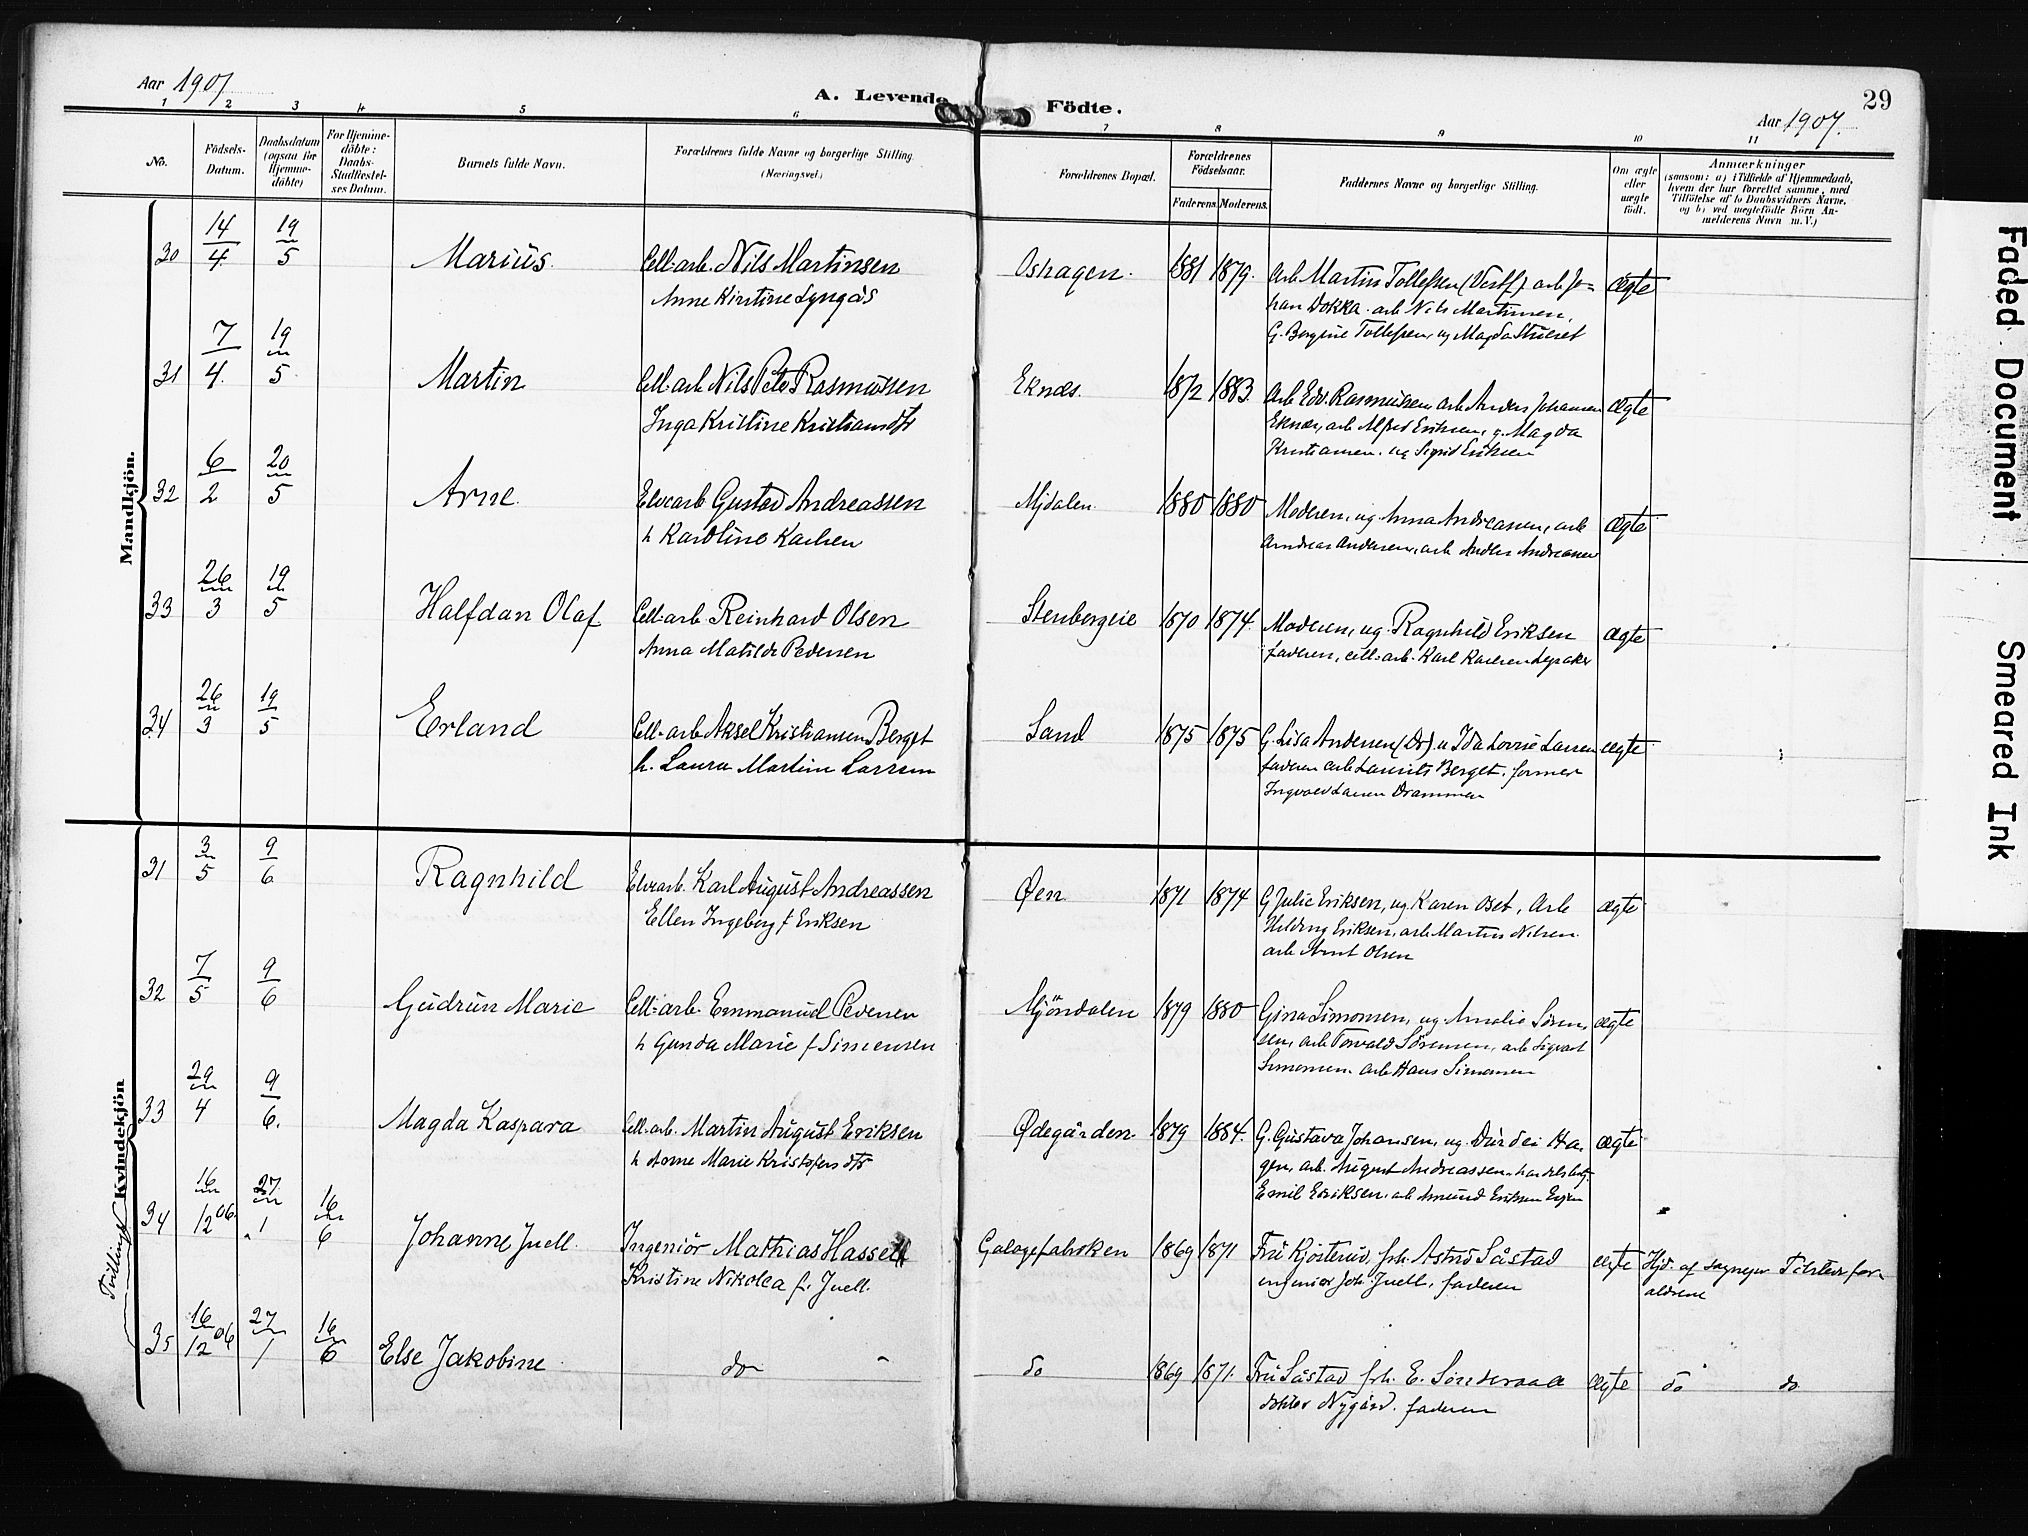 Aar 1907
A. Levende Födte.
Aar 1907.
29
1 2 3 4 5 6 7 8 9 10 11
No.
Födsels-
Datum.
Daabsdatum
(ogsaa for
Hjemme-
döbte)
For Hjemme-
döbte:
Daabs-
Stadfæstel-
ses Datum.
Barnets fulde Navn.
Forældrenes fulde Navne og borgerlige Stilling.
(Næringsvei.)
Forældrenes Bopæl.
Forældrenes
Födselsaar.
Faderens. Moderens.
Faddernes Navne og borgerlige Stilling.
Om ægte
eller
uægte
födt.
Anmærkninger
(saasom: a) i Tilfælde af Hjemmedaab,
hvem der har forrettet samme, med
Tilföielse af to Daabsvidners Navne,
og b) ved uægtefödte Börn An-
melderens Navn m. V.)
Mandkjön.
30 14/4 19/5 Marius. Cell-arb. Nils Martinsen Oshagen. 1881 1879. Arb Martin Tollefsen (Vestf) arb Jo- ægte
Anne Kirstine Lyngås
han Dokka. arb Nils Martinsen,
G. Bergine Tollefsen, ug Magda
31 7/4 19/5 Martin Cell-arb Nils Peter Rasmussen Eknes. 1872 1883. Arb Edv. Rasmussen arb Anders Johansen ægte
Inga Kristine Kristiansdtr
Eknes, arb Alfred Eriksen, g. Magda
Kristiansen. ug Sigrid Eriksen
32 6/2 20/5 Arne. Elvearb Gustav Andreassen Mjdalen. 1880 1880 Moderen, ug Anna Andreassen, arb ægte
h Karoline Karlsen
Andreas Andersen, arb Anders Andreassen
33 26/3 19/5 Halfdan Olaf Cell-arb. Reinhard Olsen Stenbergeie 1870 1874. Moderen, ug. Ragnhild Eriksen ægte
Anna Matilde Pedersen
faderen, cell-arb. Karl Karlsen
34 26/3 19/5 Erland Cell-arb Aksel Kristiansen Berget Sand 1875 1875 G. Lisa Andersen (Dr) u Ida Lovise Larsen ægte
h. Laura Martine Larsen
faderen arb Laurits Berget. former
Ingvald Larsen Drammen
Kvindekjön
31 3/5 9/6 Ragnhild Elvearb. Karl August Andreassen Øen 1871 1874 G Julie Eriksen, ug Karen Oset, Arb ægte
Ellen Ingeborg f Eriksen
Hilding Eriksen, arb Martin Nilsen
arb Arnt Olsen
32 7/5 9/6 Gudrun Marie Cell-arb. Emmanuel Pedersen Mjöndalen 1879 1880 Gina Simonsen, ug Amalie Søren- ægte
h Gunda Marie f Simensen
sen, arb Torvald Sörensen, arb Sigvart
Simonsen. arb Hans Simonsen
33 29/4 9/6. Magda Kaspara Cell-arb. Martin August Eriksen Ødegården. 1879 1884. G. Gustava Johansen, ug. Dürdei Ha- ægte
h Anne Marie Kristofersdtr
gen, arb. August Andreassen, handelsbetj.
Emil Eriksen, arb Amund Eriksen
Tvillinger
34 16/12 06. 27/1 16/6 Johanne Juell. Ingeniör Mathias Hassell Galogefabriken 1869 1871 Fru Kjösterud, frk. Astrid Såstad ægte Hjd. af sognepr Tilstede for-
Kristine Nikolea f. Juell.
ingeniør Joh Juell, faderen
ældrene
35 16/12 06 27/1 16/6 Else Jakobine do - do 1869 1871. Fru Såstad frk. E. Sönderaaa ægte do do
doktor Nygård. faderen
Faded Document
Smeared Ink